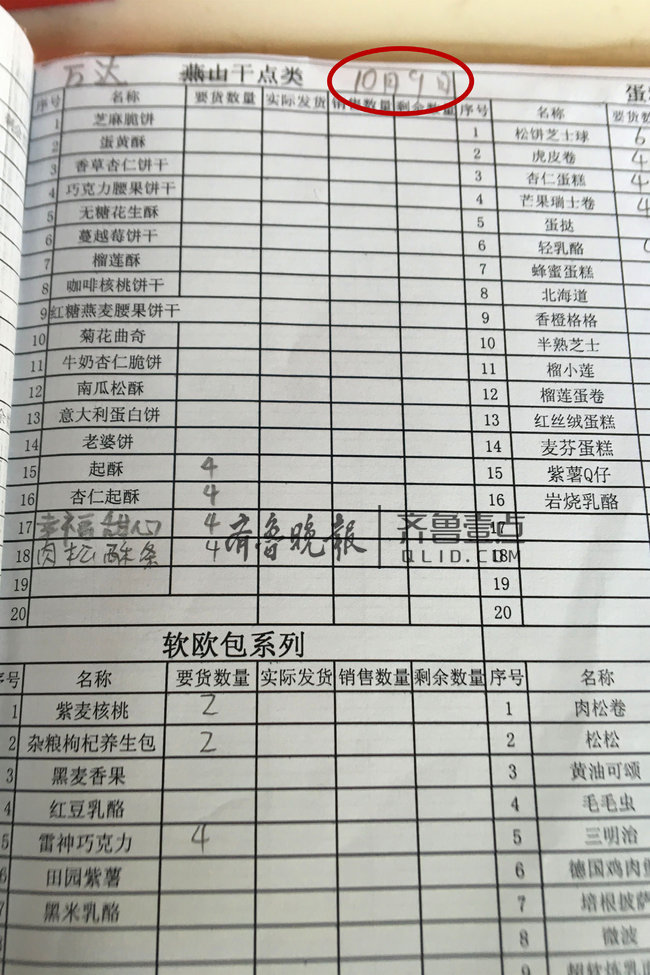 万达 燕山干点类 10月9日 蛋
序号 名称 要货数量 实际发货 销售数量 剩余数量 序号 名称 要货数
1 芝麻脆饼 1 松饼芝士球 6
2 蛋黄酥 2 虎皮卷 4
3 香草杏仁饼干 3 杏仁蛋糕 4
4 巧克力腰果饼干 4 芒果瑞士卷 4
5 无糖花生酥 5 蛋挞
6 蔓越莓饼干 6 轻乳酪
7 榴莲酥 7 蜂蜜蛋糕
8 咖啡核桃饼干 8 北海道
9 红糖燕麦腰果饼干 9 香橙格格
10 菊花曲奇 10 半熟芝士
11 牛奶杏仁脆饼 11 榴小莲
12 南瓜松酥 12 榴莲蛋卷
13 意大利蛋白饼 13 红丝绒蛋糕
14 老婆饼 14 麦芬蛋糕
15 起酥 4 15 紫薯Q仔
16 杏仁起酥 4 16 岩烧乳酪
17 幸福甜心 4 17
18 肉松酥条 4 18
齐鲁晚报 齐鲁壹点
QLID.COM
19 19
20 20
软欧包系列
序号 名称 要货数量 实际发货 销售数量 剩余数量 序号 名称
1 紫麦核桃 2 1 肉松卷
2 杂粮枸杞养生包 2 2 松松
3 黑麦香果 3 黄油可颂
4 红豆乳酪 4 毛毛虫
5 雷神巧克力 4 5 三明治
6 田园紫薯 6 德国鸡肉
7 黑米乳酪 7 培根披萨
8 微波
9